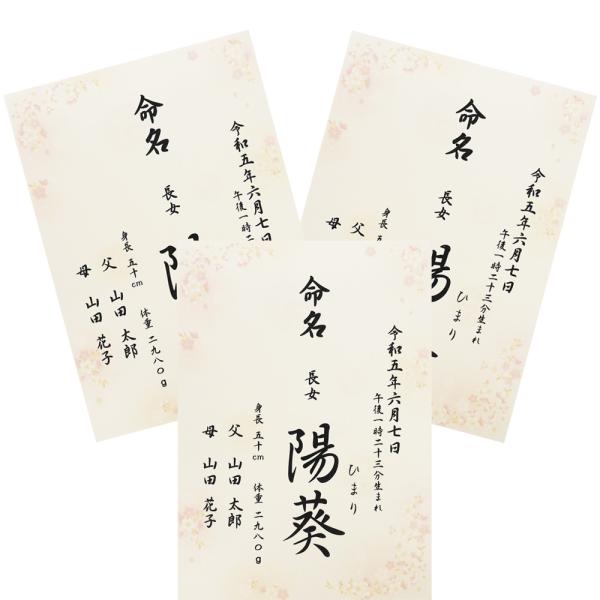 命名
令和五年六月七日
午後一時
長女
陽
身長 五十cm 体重 二九八〇g
父 山田 太郎
母 山田 花子
命名
令和五年六月七日
午後一時二十三分生まれ
長女
陽
ひまり
身長 五
父
母
命名
令和五年六月七日
午後一時二十三分生まれ
長女
陽葵
ひまり
身長 五十cm 体重 二九八〇g
父 山田 太郎
母 山田 花子